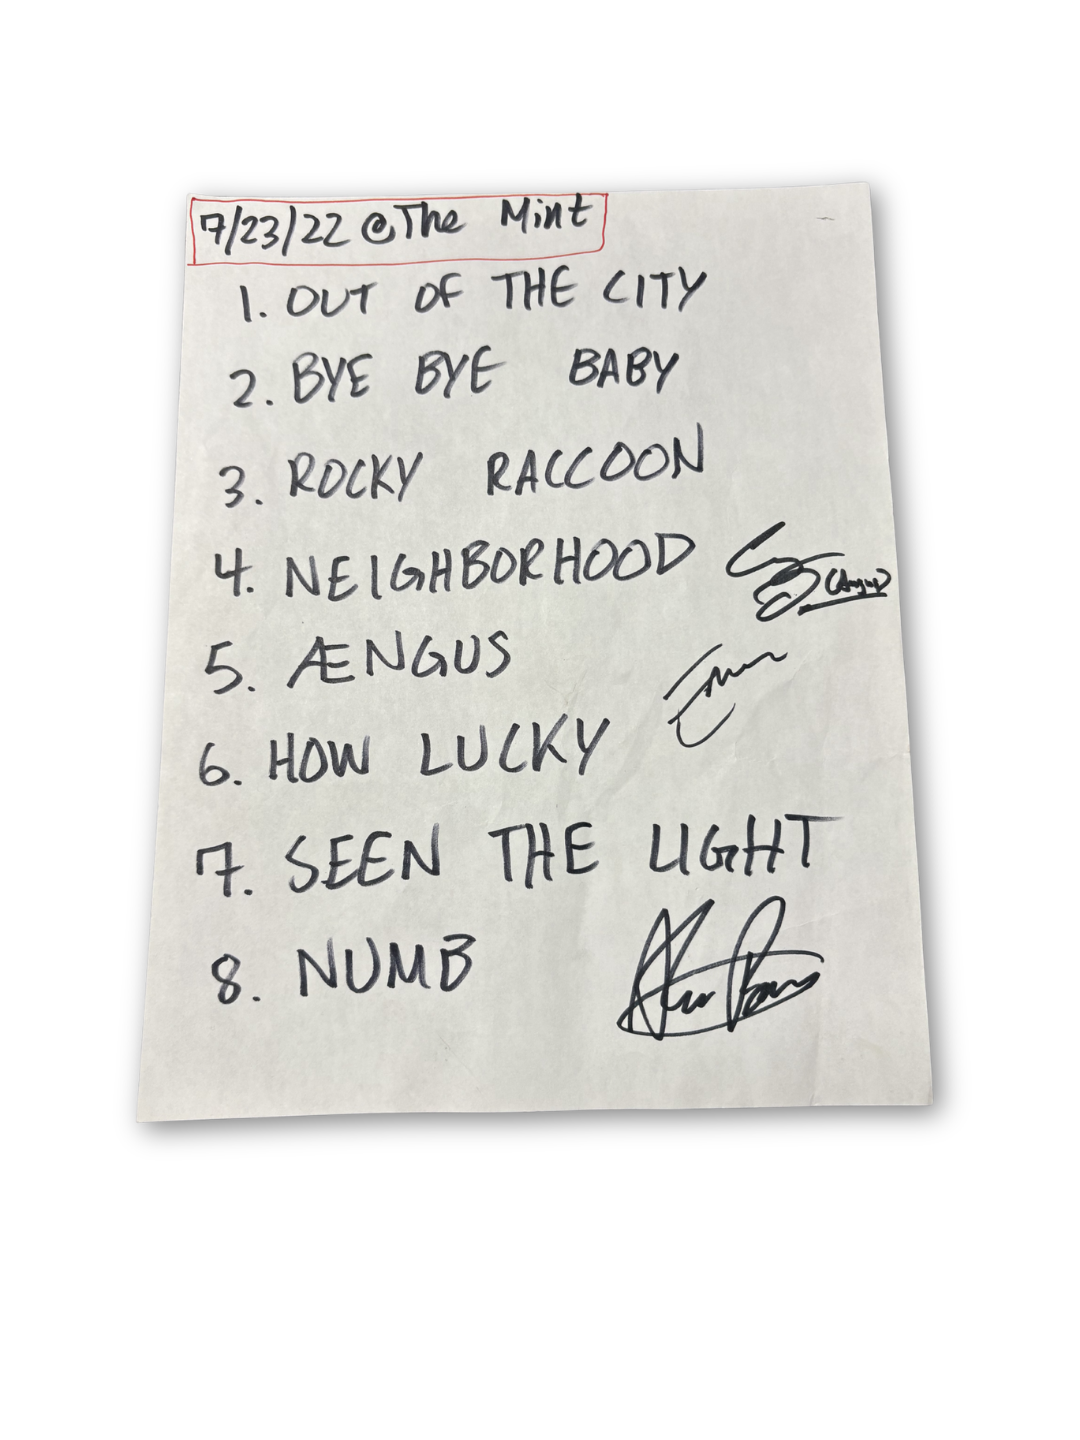 7/23/22 @ The Mint
1. OUT OF THE CITY
2. BYE BYE BABY
3. ROCKY RACCOON
4. NEIGHBORHOOD
5. ÆNGUS
6. HOW LUCKY
7. SEEN THE LIGHT
8. NUMB